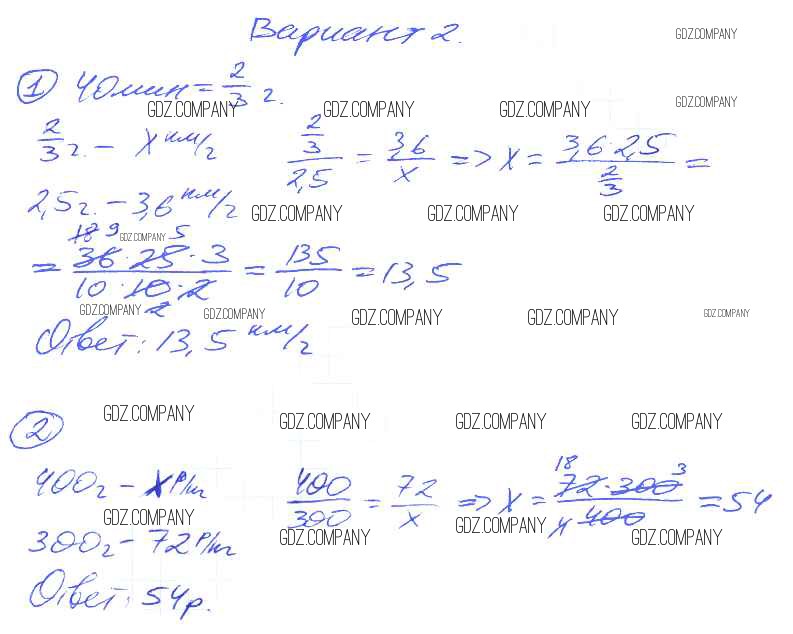 Вариант 2.
GDZ.COMPANY
① 40 мин = 2/3 г.
GDZ.COMPANY GDZ.COMPANY GDZ.COMPANY GDZ.COMPANY
2/3 г. – x км/г (2/3)/2,5 = 3,6/x => x = (3,6·2,5)/(2/3) =
2,5 г. – 3,6 км/г GDZ.COMPANY GDZ.COMPANY GDZ.COMPANY
18 9 GDZ.COMPANY 5
= (36·25·3)/(10·10·2) = 135/10 = 13,5
GDZ.COMPANY 2 GDZ.COMPANY GDZ.COMPANY GDZ.COMPANY GDZ.COMPANY
Ответ: 13,5 км/г
GDZ.COMPANY GDZ.COMPANY GDZ.COMPANY GDZ.COMPANY
②
400г – x р/кг 400/300 = 72/x => x = (18 72·300 3)/(4 400) = 54
GDZ.COMPANY GDZ.COMPANY GDZ.COMPANY GDZ.COMPANY
300г – 72 р/кг
Ответ: 54р.